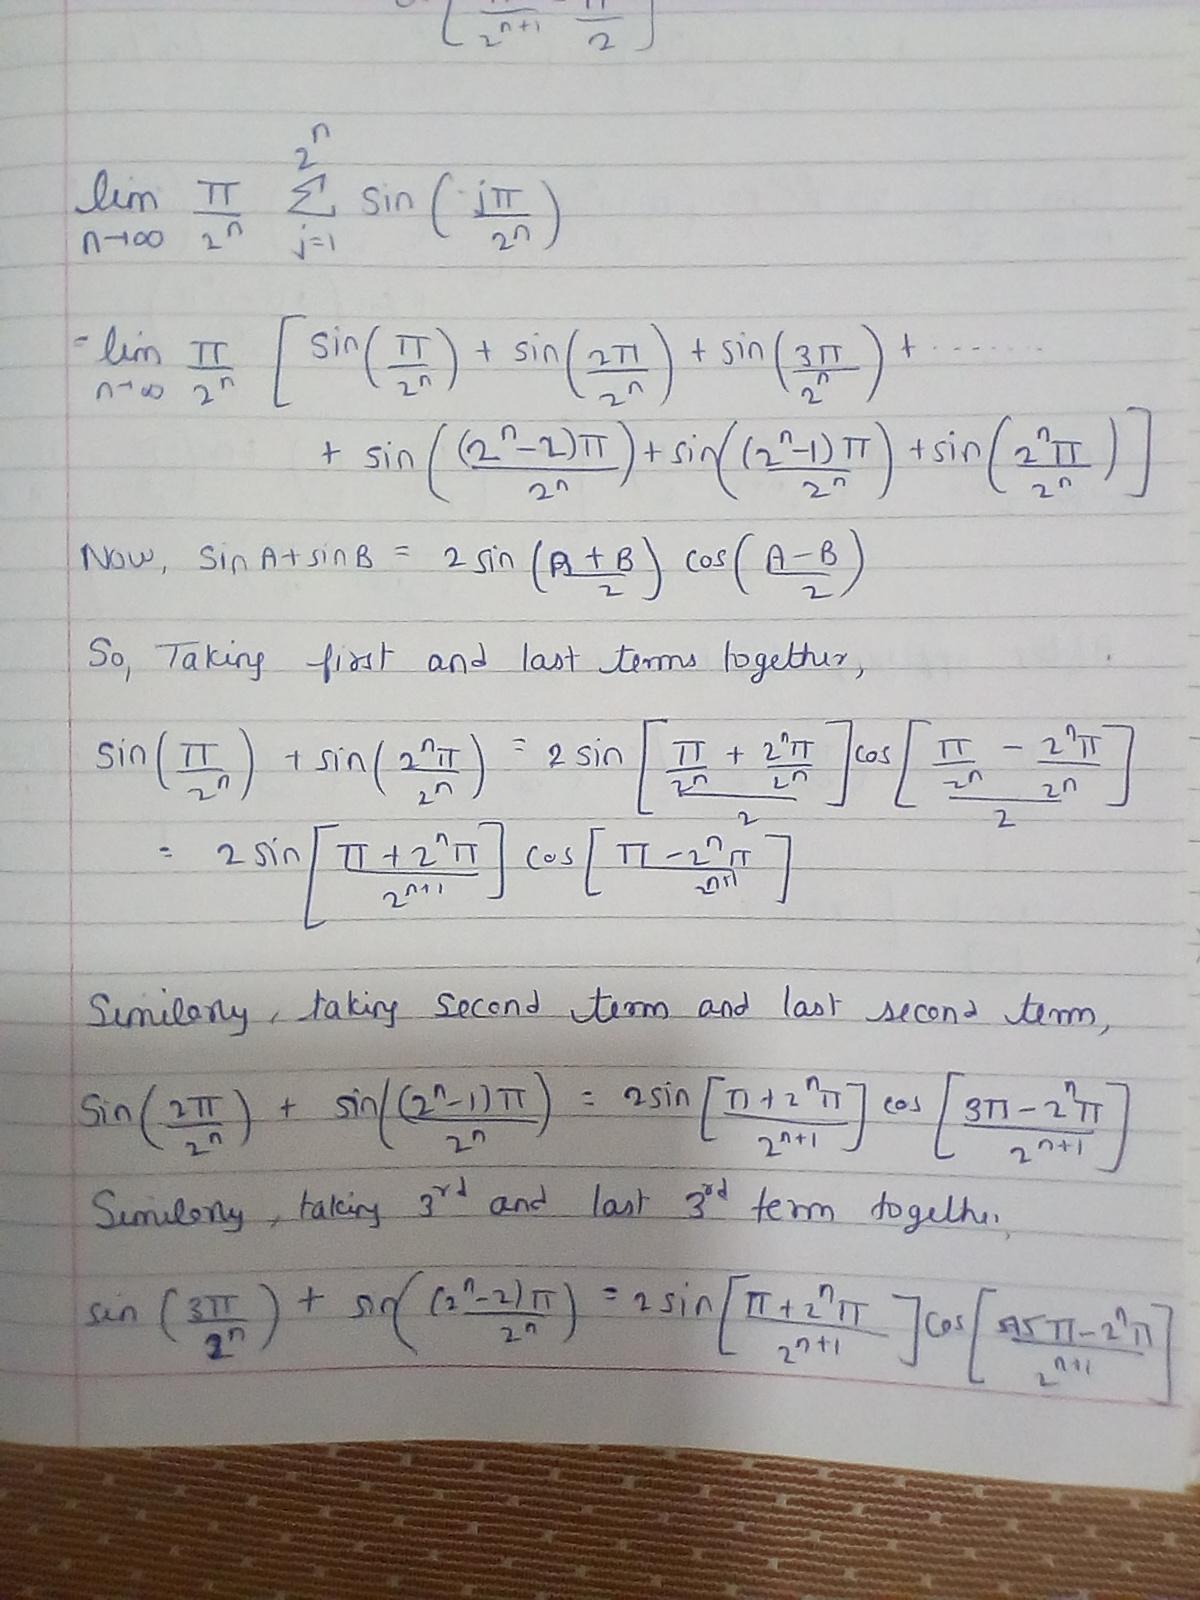 [ π/2^(n+1) π/2 ]
lim n→∞ π/2^n Σ_{j=1}^{2^n} sin (jπ/2^n)
= lim n→∞ π/2^n [ sin(π/2^n) + sin(2π/2^n) + sin(3π/2^n) + ........
+ sin((2^n-2)π/2^n) + sin((2^n-1)π/2^n) + sin(2^nπ/2^n) ]
Now, sin A + sin B = 2 sin (A+B/2) cos (A-B/2)
So, Taking first and last terms together,
sin(π/2^n) + sin(2^nπ/2^n) = 2 sin [ (π/2^n + 2^nπ/2^n)/2 ] cos [ (π/2^n - 2^nπ/2^n)/2 ]
= 2 sin [ π+2^nπ/2^(n+1) ] cos [ π-2^nπ/2^(n+1) ]
Similarly, taking second term and last second term,
Sin(2π/2^n) + sin((2^n-1)π/2^n) = 2sin [ π+2^nπ/2^(n+1) ] cos [ 3π-2^nπ/2^(n+1) ]
Similarly, taking 3rd and last 3rd term together,
sin (3π/2^n) + sin((2^n-2)π/2^n) = 2 sin [ π+2^nπ/2^(n+1) ] cos [ 5π-2^nπ/2^(n+1) ]